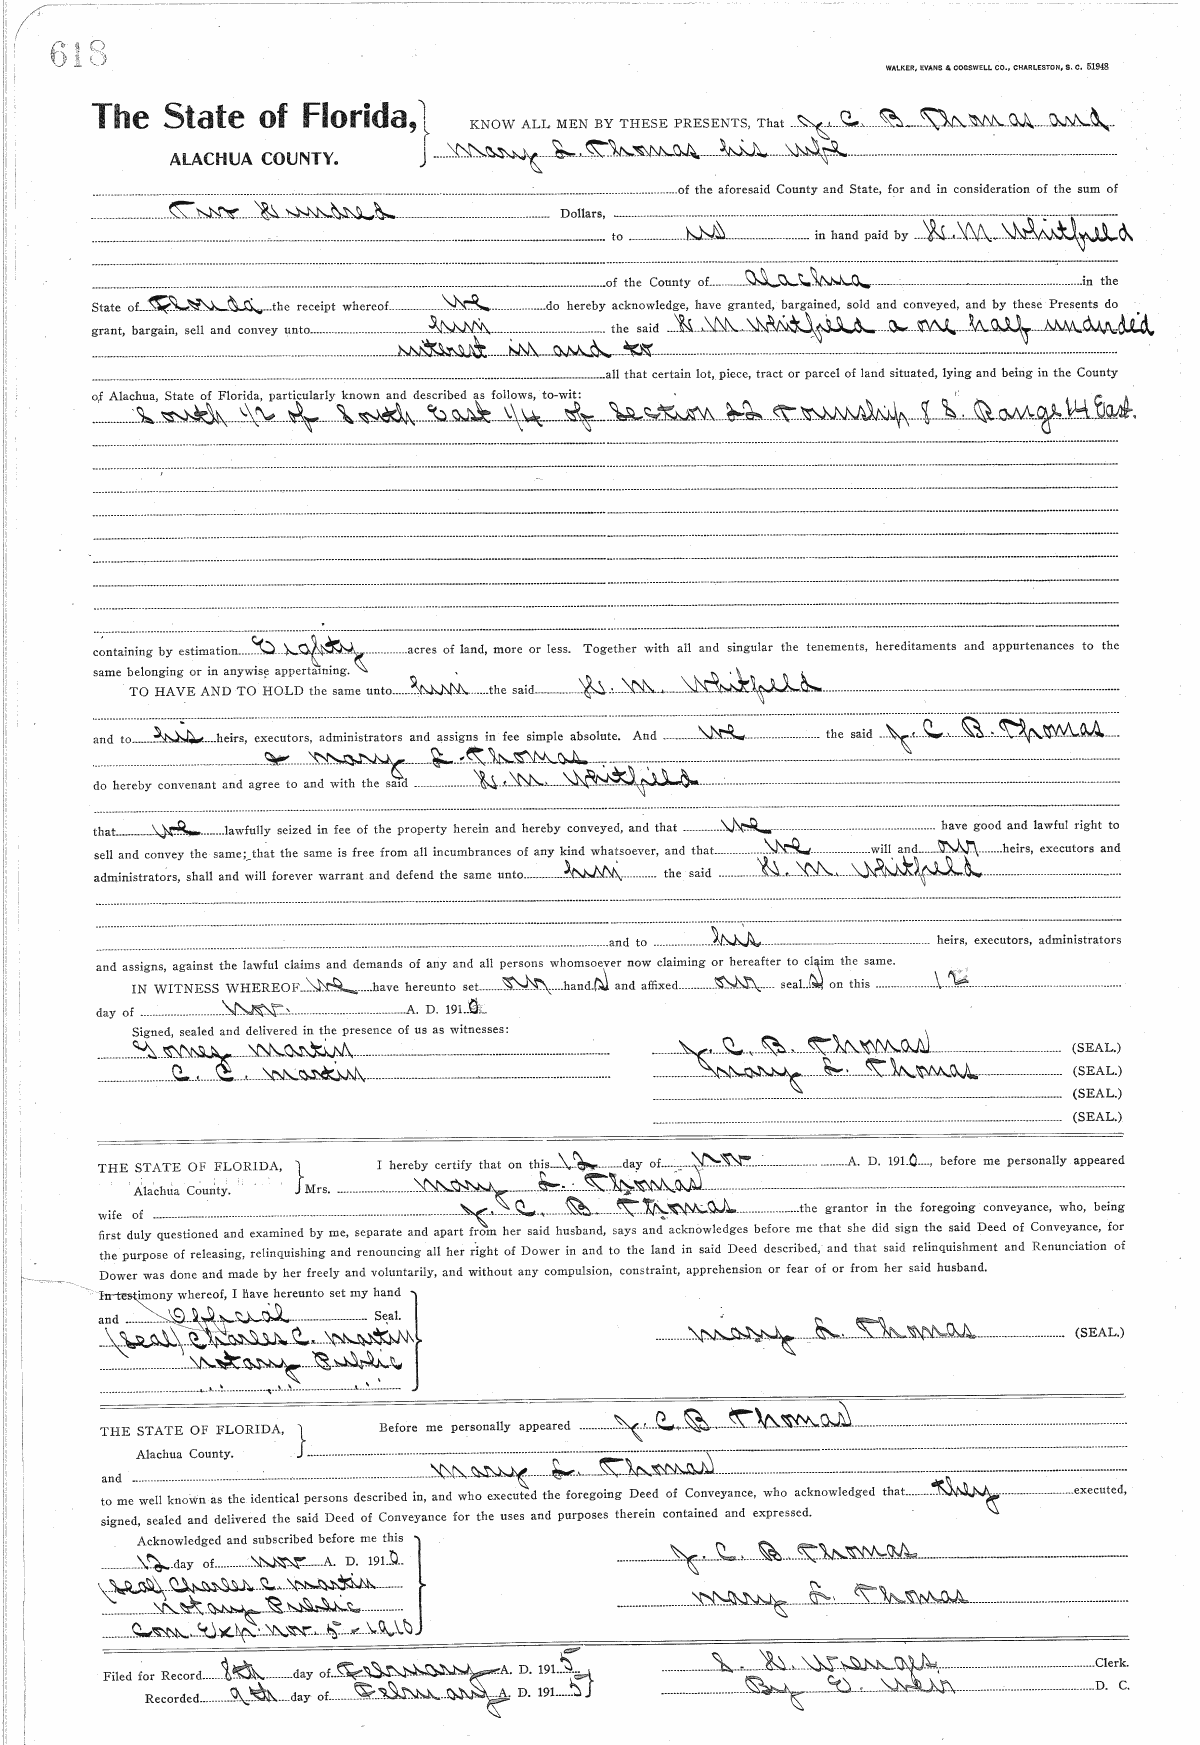 618
WALKER, EVANS & COGSWELL CO., CHARLESTON, S. C. 51948
The State of Florida,
ALACHUA COUNTY.
KNOW ALL MEN BY THESE PRESENTS, That J. C. B. Thomas and
Mary L. Thomas his wife
of the aforesaid County and State, for and in consideration of the sum of
Two Hundred Dollars,
to us in hand paid by H. M. Whitfield
of the County of Alachua in the
State of Florida the receipt whereof we do hereby acknowledge, have granted, bargained, sold and conveyed, and by these Presents do
grant, bargain, sell and convey unto him the said H. M Whitfield a one half undivided
interest in and to
all that certain lot, piece, tract or parcel of land situated, lying and being in the County
of Alachua, State of Florida, particularly known and described as follows, to-wit:
South 1/2 of South East 1/4 of Section 22 Township 8 S. Range 14 East.
containing by estimation Eighty acres of land, more or less. Together with all and singular the tenements, hereditaments and appurtenances to the
same belonging or in anywise appertaining.
TO HAVE AND TO HOLD the same unto him the said H. M. Whitfield
and to his heirs, executors, administrators and assigns in fee simple absolute. And we the said J. C. B. Thomas
& Mary L. Thomas
do hereby convenant and agree to and with the said H. M. Whitfield
that we lawfully seized in fee of the property herein and hereby conveyed, and that we have good and lawful right to
sell and convey the same; that the same is free from all incumbrances of any kind whatsoever, and that we will and our heirs, executors and
administrators, shall and will forever warrant and defend the same unto him the said H. M. Whitfield
and to his heirs, executors, administrators
and assigns, against the lawful claims and demands of any and all persons whomsoever now claiming or hereafter to claim the same.
IN WITNESS WHEREOF we have hereunto set our hand s and affixed our seal s on this 12
day of Nov. A. D. 1910
Signed, sealed and delivered in the presence of us as witnesses:
Gomez Martin J. C. B. Thomas (SEAL.)
C. C. Martin Mary L. Thomas (SEAL.)
(SEAL.)
(SEAL.)
THE STATE OF FLORIDA,
Alachua County.
I hereby certify that on this 12 day of Nov A. D. 1910, before me personally appeared
Mrs. Mary L. Thomas
wife of J. C. B Thomas the grantor in the foregoing conveyance, who, being
first duly questioned and examined by me, separate and apart from her said husband, says and acknowledges before me that she did sign the said Deed of Conveyance, for
the purpose of releasing, relinquishing and renouncing all her right of Dower in and to the land in said Deed described, and that said relinquishment and Renunciation of
Dower was done and made by her freely and voluntarily, and without any compulsion, constraint, apprehension or fear of or from her said husband.
In testimony whereof, I have hereunto set my hand
and Official Seal.
(Seal) Charles C. Martin Mary L. Thomas (SEAL.)
Notary Public
THE STATE OF FLORIDA,
Alachua County.
Before me personally appeared J. C B Thomas
and Mary L. Thomas
to me well known as the identical persons described in, and who executed the foregoing Deed of Conveyance, who acknowledged that they executed,
signed, sealed and delivered the said Deed of Conveyance for the uses and purposes therein contained and expressed.
Acknowledged and subscribed before me this
12 day of Nov A. D. 1910 J. C. B Thomas
(Seal) Charles C. Martin
Notary Public Mary L. Thomas
Com. Exp. Nov. 5 - 1910
Filed for Record 8th day of February A. D. 1915 S. H. Wienges Clerk.
Recorded 9th day of February A. D. 1915 By E. Weir D. C.